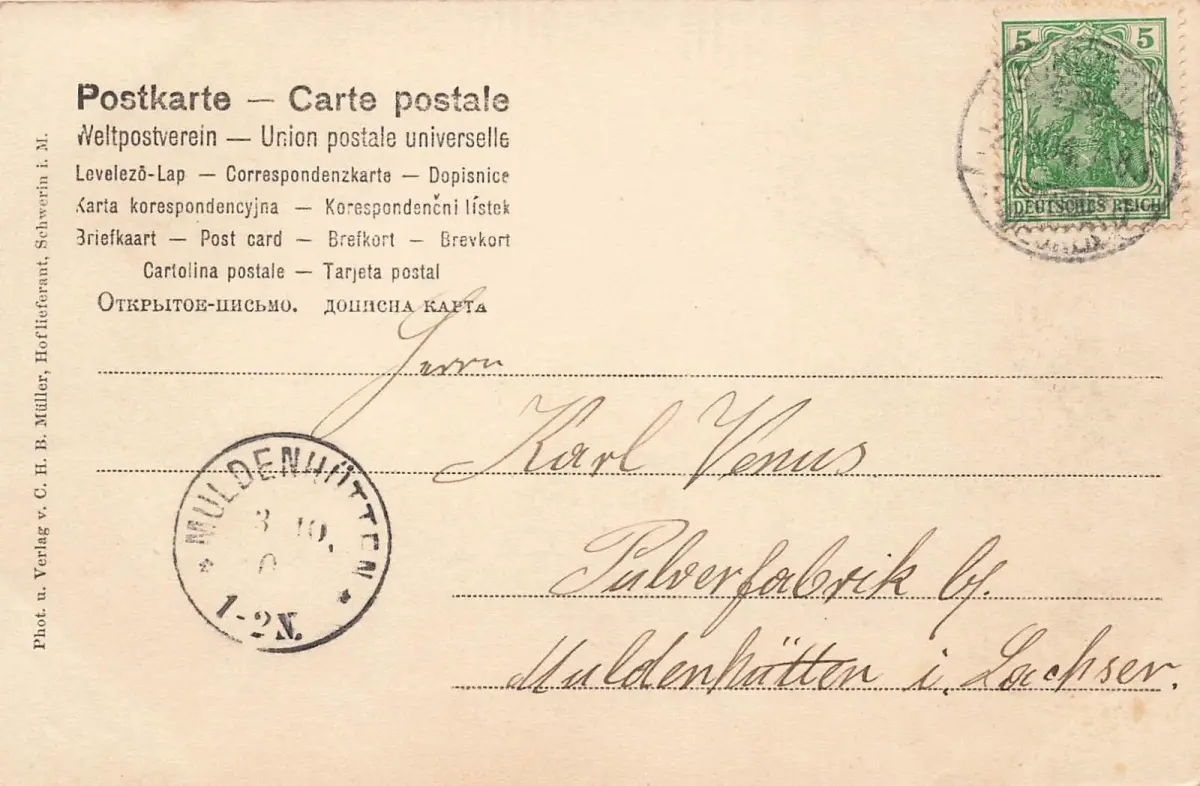 5 5
DEUTSCHES REICH
Postkarte — Carte postale
Weltpostverein — Union postale universelle
Levelezõ-Lap — Correspondenzkarte — Dopisnice
Karta korespondencyjna — Korespondenčni lístek
Briefkaart — Post card — Brefkort — Brevkort
Cartolina postale — Tarjeta postal
Открытое-письмо. дописна карта
Phot. u. Verlag v. C. H. B. Müller, Hoflieferant, Schwerin i. M.
Herrn
Karl Venus
Pulverfabrik b/.
Muldenhütten i. Sachsen.
* MULDENHÜTTEN *
3 10.
0
1-2N.